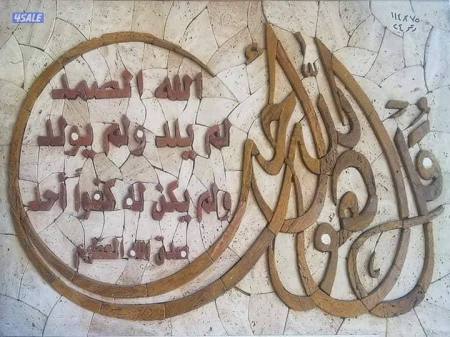 4SALE
قل هو الله أحد
الله الصمد
لم يلد ولم يولد
ولم يكن له كفواً أحد
صدق الله العظيم